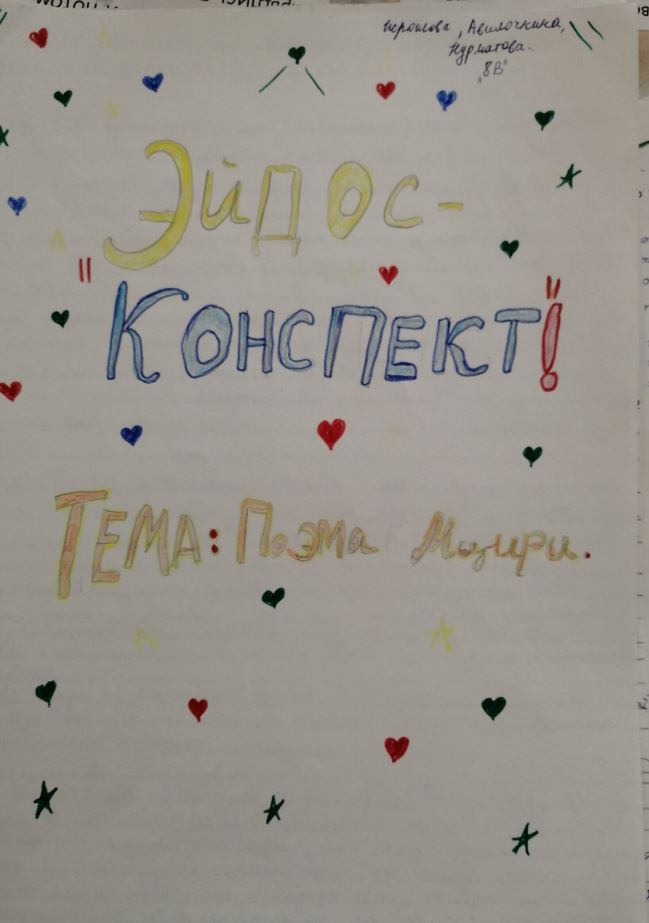 Авилочкина,
Нурматова
"8В"
ЭЙДОС-
"КОНСПЕКТ"!
ТЕМА: Поэма Мцыри.